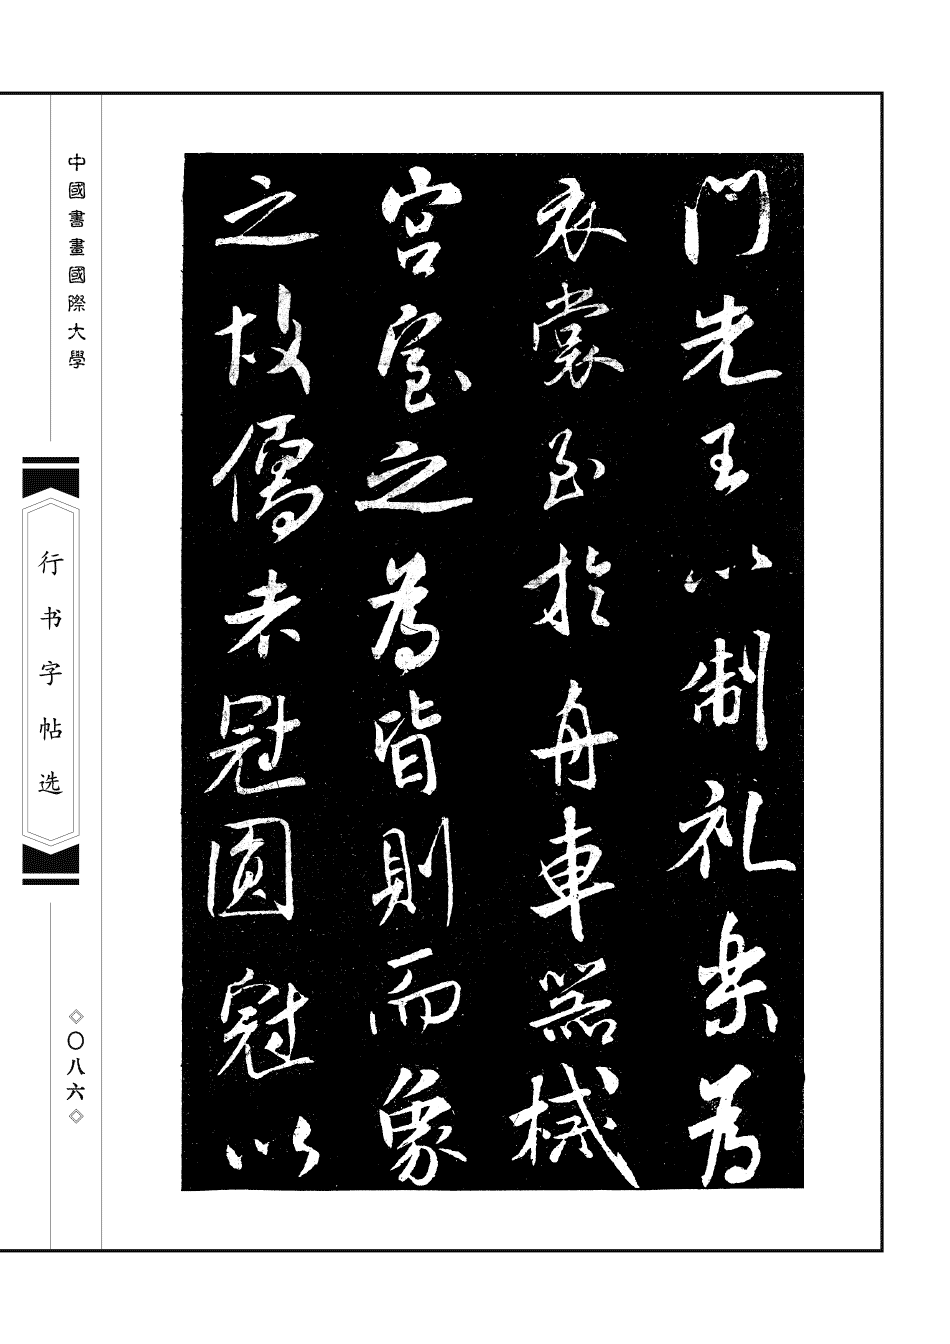 門先王以制礼乐為
衣裳至於舟車器械
宮室之為皆則而象
之故儒者冠圓冠以
中國書畫國際大學
行书字帖选
〇八六